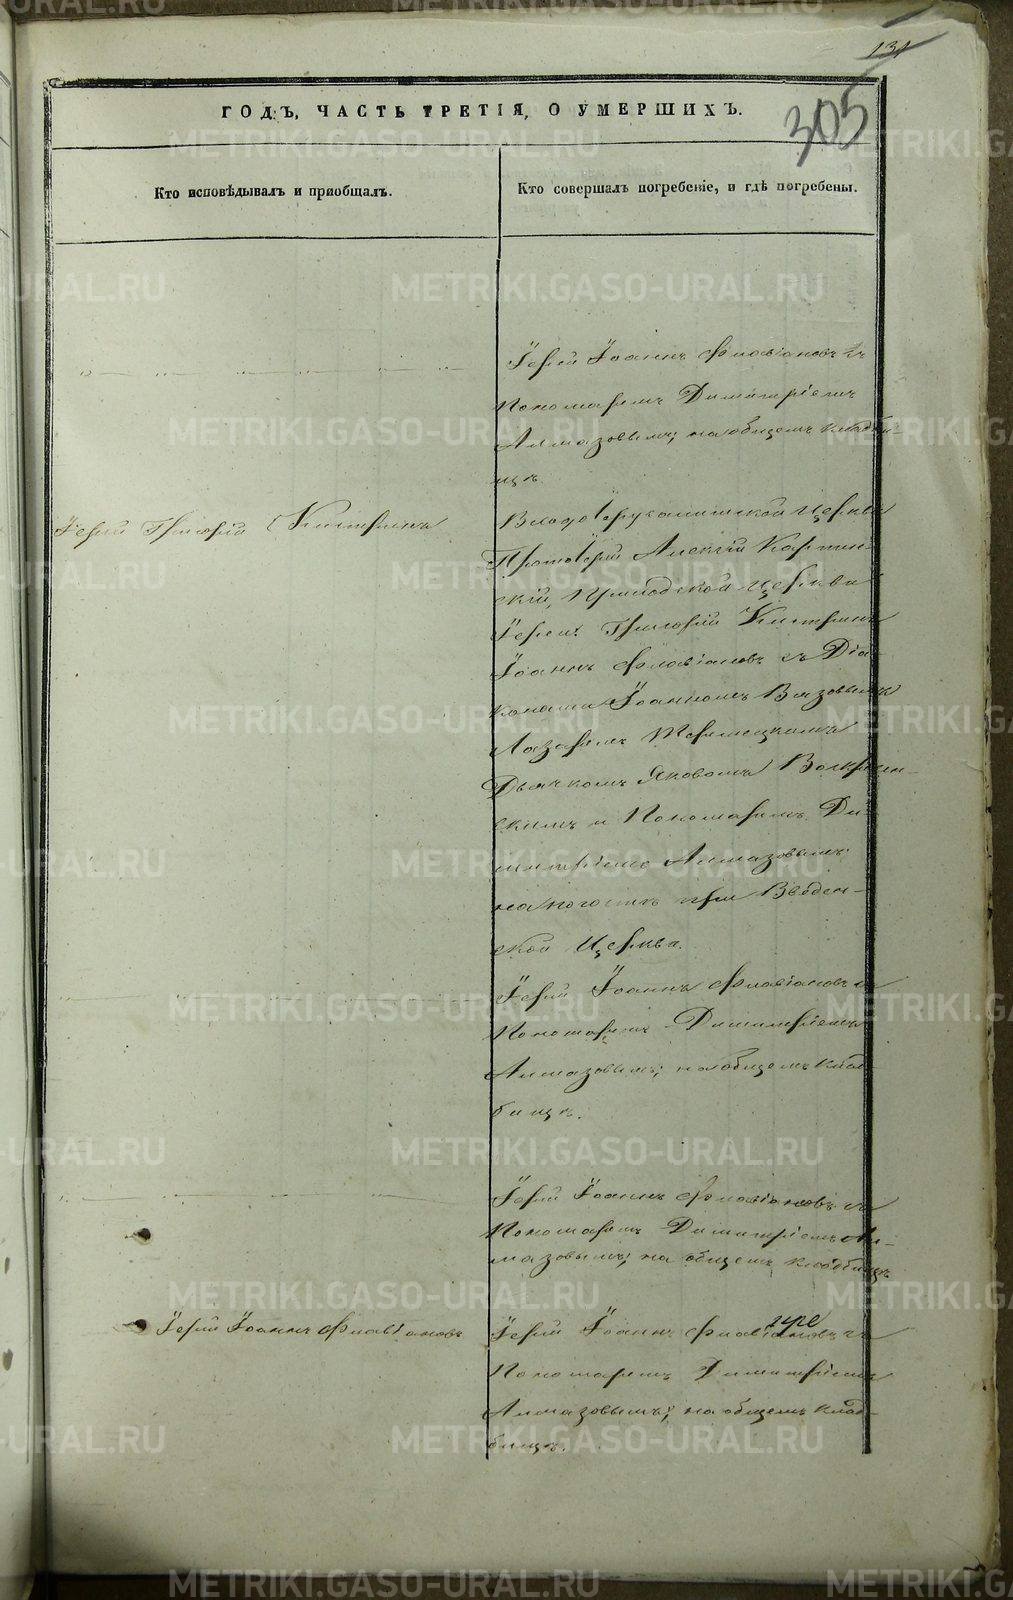 131
305
ГОДЪ, ЧАСТЬ ТРЕТІЯ, О УМЕРШИХЪ.
Кто исповѣдывалъ и пріобщалъ.
Кто совершалъ погребеніе, и гдѣ погребены.
Іерей Іоаннъ Флавіановъ съ
Пономаремъ Димитріемъ
Алмазовымъ; на общемъ кладби-
щѣ.
Іерей Григорій
Входоіерусалимской церкви
Протоіерей Алексій Карпин-
скій, церкви
Іереи: Григорій
Іоаннъ Флавіановъ съ Діа-
конами Іоанномъ Вязовымъ
Лазаремъ
Дьячкомъ Яковомъ Воскресен-
скимъ и Пономаремъ Ди-
митріемъ Алмазовымъ
на погостѣ при Введен-
ской Церкви.
Іерей Іоаннъ Флавіановъ съ
Пономаремъ Димитріемъ
Алмазовымъ; на общемъ клад-
бищѣ.
Іерей Іоаннъ Флавіановъ съ
Пономаремъ Димитріемъ Ал-
мазовымъ; на общемъ кладбищѣ
Іерей Іоаннъ Флавіановъ
Іерей Іоаннъ Флавіановъ съ
Пономаремъ Димитріемъ
Алмазовымъ; на общемъ клад-
бищѣ.
METRIKI.GASO-URAL.RU